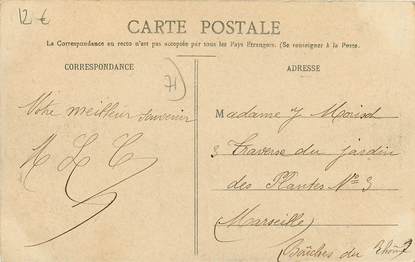 12 €
CARTE POSTALE
La Correspondance au recto n'est pas acceptée par tous les Pays Etrangers. (Se renseigner à la Poste.
CORRESPONDANCE
71
ADRESSE
Votre meilleur souvenir
M L C
Madame J
3 Traverse du jardin
des Plantes Nº 3
(Marseille)
(Bouches du Rhône)